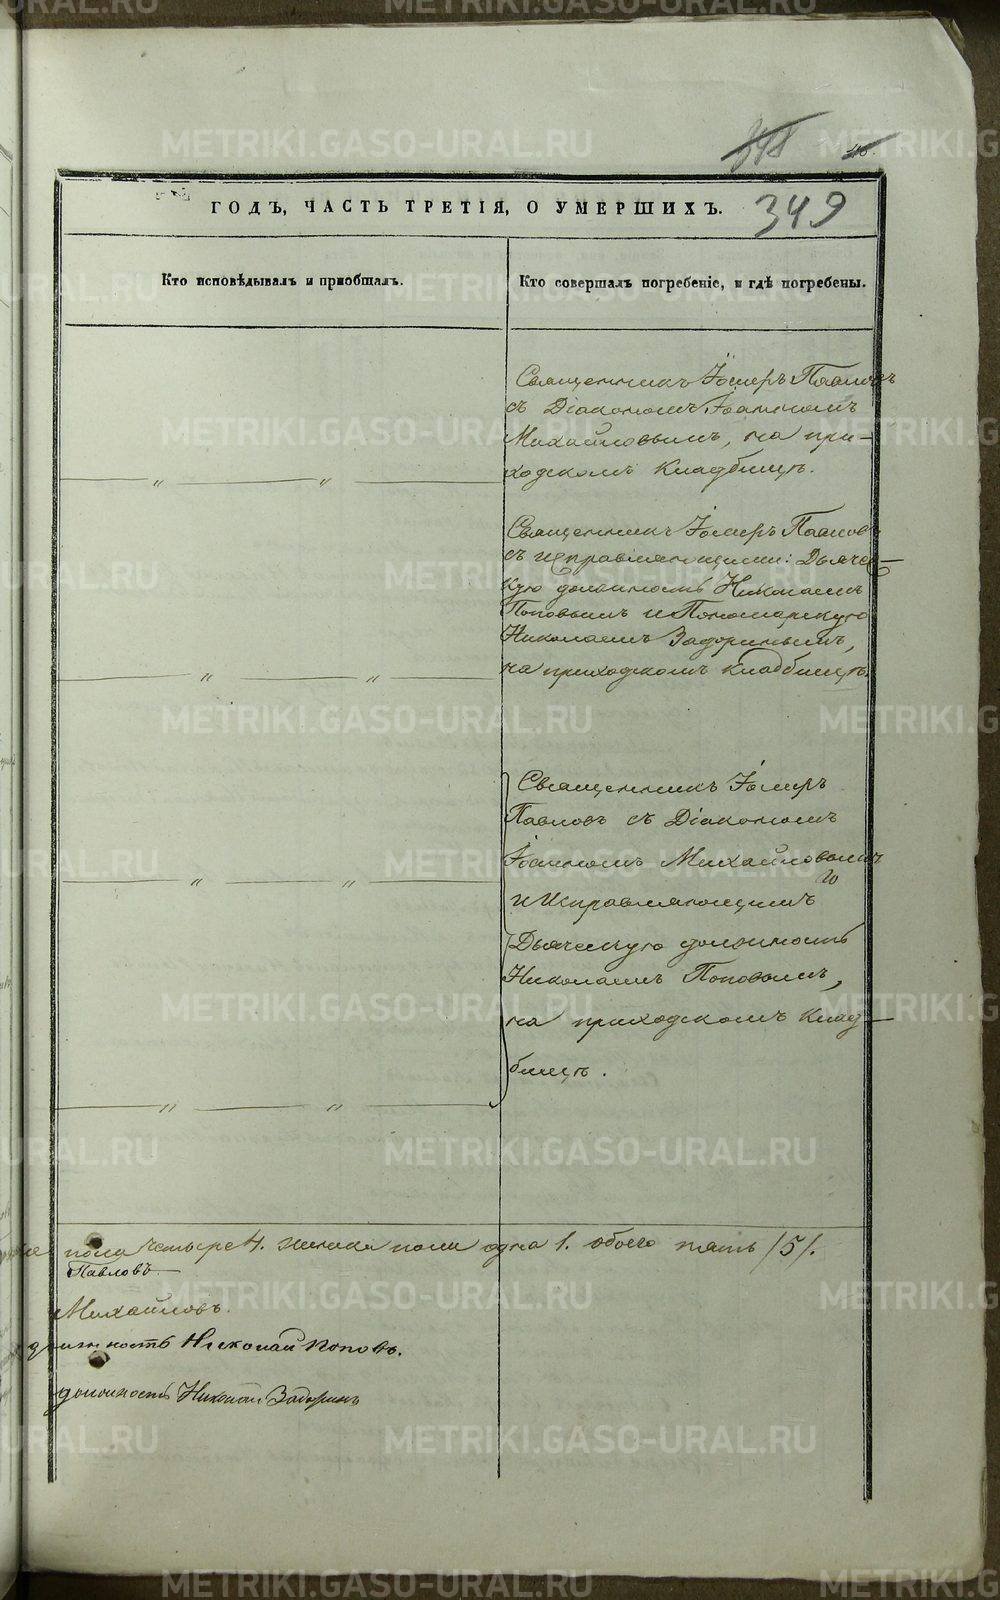 348
46.
349
ГОДЪ, ЧАСТЬ ТРЕТІЯ, О УМЕРШИХЪ.
Кто исповѣдывалъ и пріобщалъ.
Кто совершалъ погребеніе, и гдѣ погребены.
Священникъ Іосифъ Павловъ
съ Діакономъ Іоанномъ
Михайловымъ, на при-
ходскомъ кладбищѣ.
Священникъ Іосифъ Павловъ
съ исправляющими: Дьячес-
кую должность Николаемъ
Поповымъ и Пономарскую
Николаемъ Задоринымъ,
на приходскомъ кладбищѣ.
Священникъ Іосифъ
Павловъ съ Діакономъ
Іоанномъ Михайловымъ
и Исправляющимъ
Дьяческую должность
Николаемъ Поповымъ,
на приходскомъ клад-
бищѣ.
пола четыре 4. женска пола одна 1. обоего пять /5/.
Павловъ
Михайловъ.
должность Николай Поповъ.
должность Николай Задоринъ
METRIKI.GASO-URAL.RU